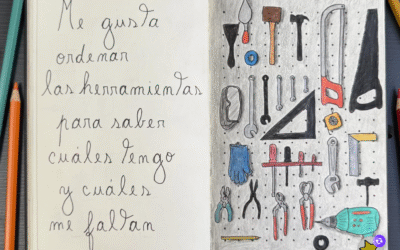 Me gusta
ordenar
las herramientas
para saber
cuáles tengo
y cuáles
me faltan